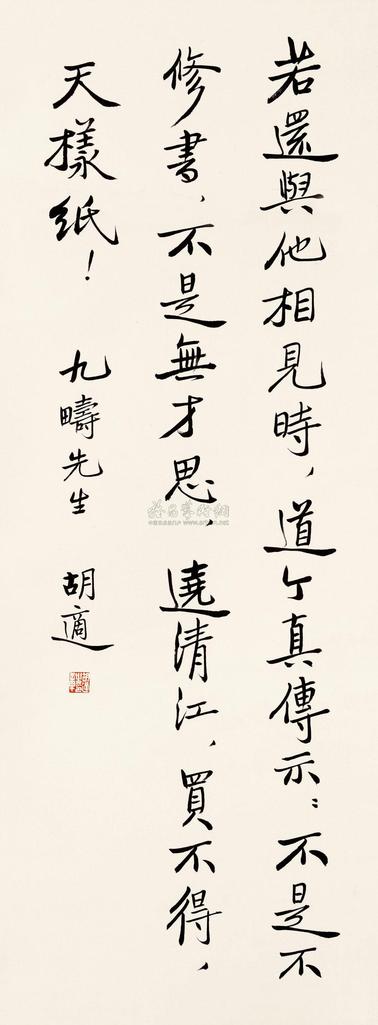 若還與他相見時，道个真傳示：不是不
修書，不是無才思，遶清江，買不得，
天樣紙！
九疇先生 胡適